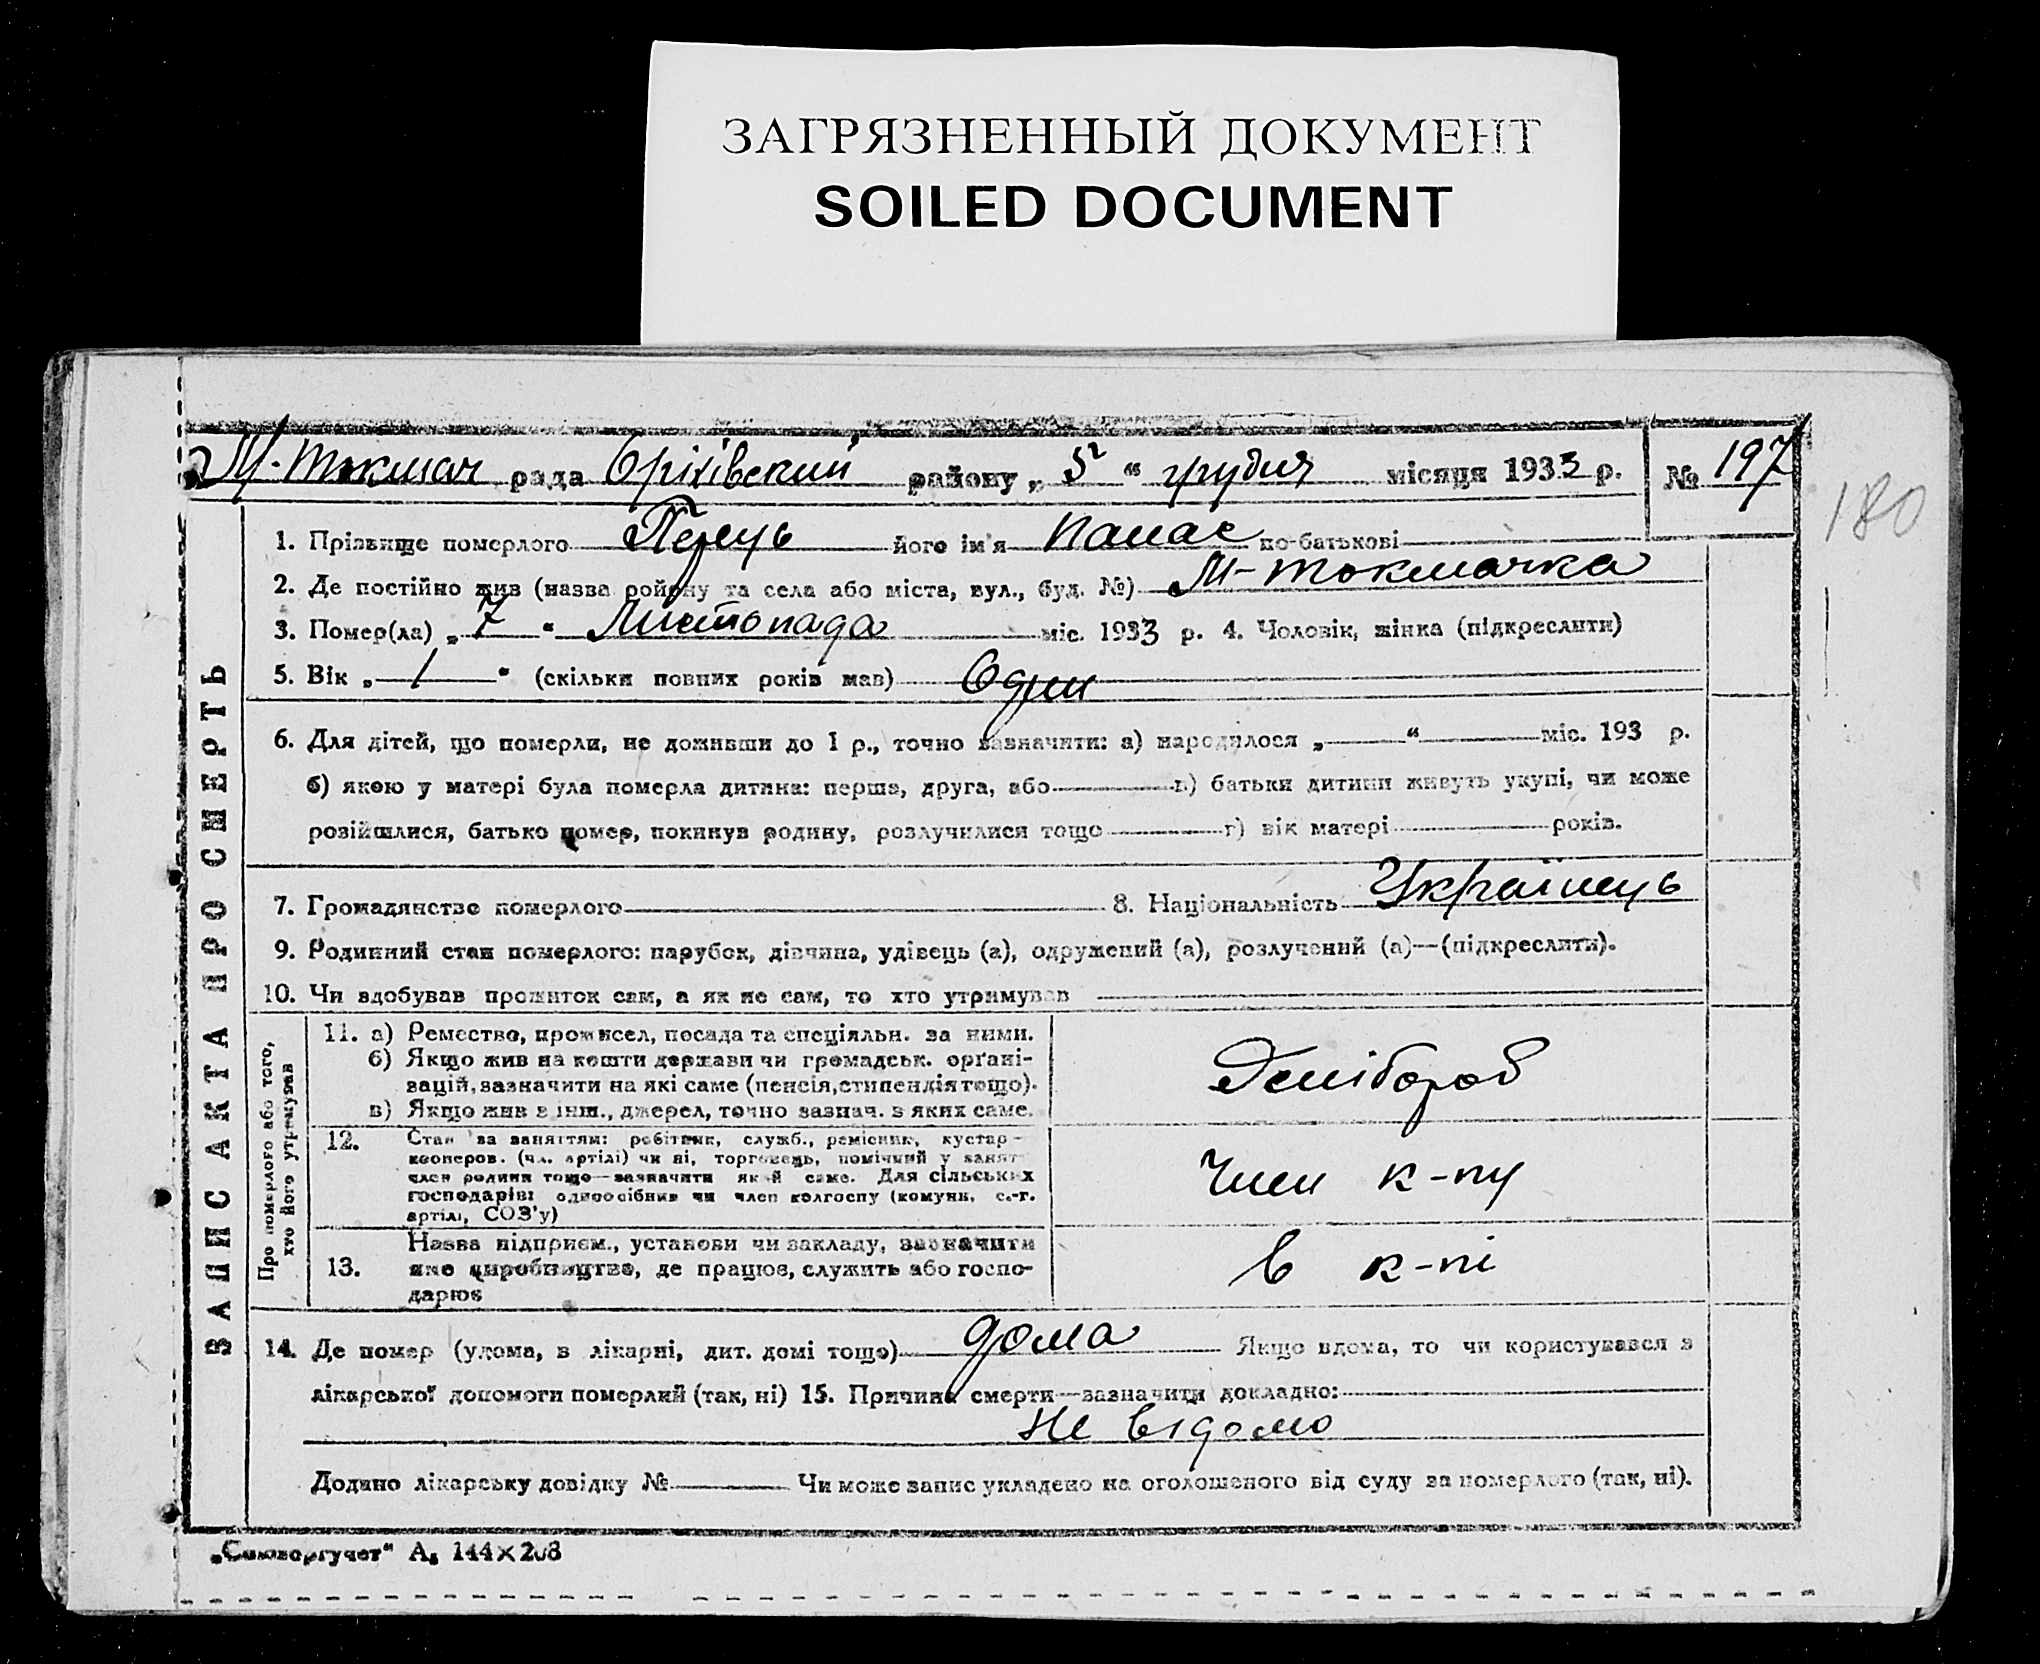 ЗАГРЯЗНЕННЫЙ ДОКУМЕНТ
SOILED DOCUMENT
М-Токмач рада Оріхівский району „5“ грудня місяця 1933 р. № 197
180
ЗАПИС АКТА ПРО СМЕРТЬ
1. Прізвище померлого Перець його ім'я Панас по-батькові
2. Де постійно жив (назва ройону та села або міста, вул., буд. №) М-Токмачка
3. Помер(ла) „7“ Листопада міс. 1933 р. 4. Чоловік, жінка (підкреслити)
5. Вік „1“ (скільки повних років мав) Один
6. Для дітей, що померли, не доживши до 1 р., точно зазначити: а) народилося „ “ міс. 193 р.
б) якою у матері була померла дитина: перша, друга, або в) батьки дитини живуть укупі, чи може
розійшлися, батько помер, покинув родину, розлучилися тощо г) вік матері років.
7. Громадянство померлого 8. Національність Українець
9. Родинний стан померлого: парубок, дівчина, удівець (а), одружений (а), розлучений (а)—(підкреслити).
10. Чи здобував прожиток сам, а як не сам, то хто утримував
Про померлого або того, хто його утримував
11. а) Ремество, промисел, посада та спеціяльн. за ними.
б) Якщо жив на кошти держави чи громадськ. орґані-
зацій, зазначити на які саме (пенсія, стипендія тощо).
в) Якщо жив з інш., джерел, точно зазнач. з яких саме.
12. Стан за заняттям: робітник, служб., ремісник, кустар-
кооперов. (чл. артілі) чи ні, торговець, помічний у занят
член родини тощо—зазначити який саме. Для сільських
господарів: одноосібник чи член колгоспу (комуни, с.-г.
артілі, СОЗ'у)
Член к-пу
13. Назва підприєм., установи чи закладу, зазначити
яке виробництво, де працює, служить або госпо-
дарює
в к-пі
14. Де помер (удома, в лікарні, дит. домі тощо) дома Якщо вдома, то чи користувався з
лікарської допомоги померлий (так, ні) 15. Причина смерти—зазначити докладно:
не відомо
Додано лікарську довідку № Чи може запис укладено на оголошеного від суду за померлого (так, ні).
„Союзоргучет“ А₅ 144×208